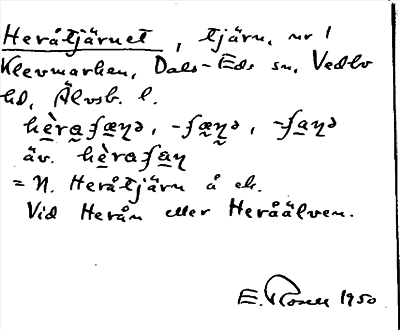 Heråtjärnet, tjärn, nr 1
Klevmarken, Dals-Eds sn, Vedbo
hd, Älvsb. l.
hèraʃæṇə, -ʃæṇə, -ʃaṇə
äv. hèraʃaṇ
= N. Heråtjärn å ek.
Vid Herån eller Heråälven.
E. Rosell 1950